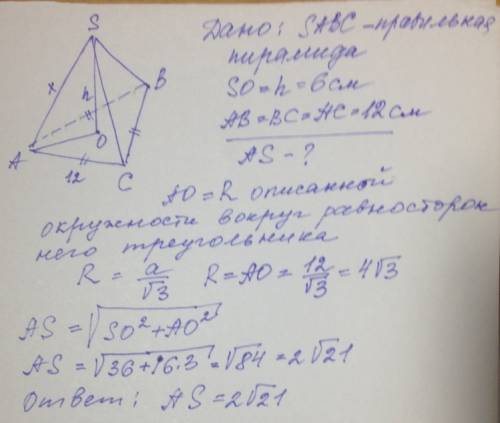 S
x
h
B
A
O
12
C
Дано: SABC – правильная
пирамида
SO = h = 6 см
AB = BC = AC = 12 см
AS – ?
AO = R описанной
окружности вокруг равносторон
него треугольника
R = a/√3 R = AO = 12/√3 = 4√3
AS = √(SO² + AO²)
AS = √(36+16·3) = √84 = 2√21
Ответ: AS = 2√21